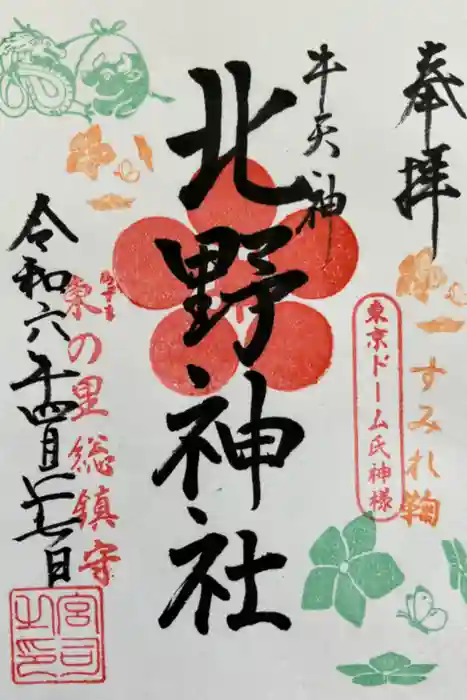 奉拝
すみれ鞠
東京ドーム氏神様
牛天神
北野神社
あずま
東の里総鎮守
令和六年四月廿七日
宮司之印